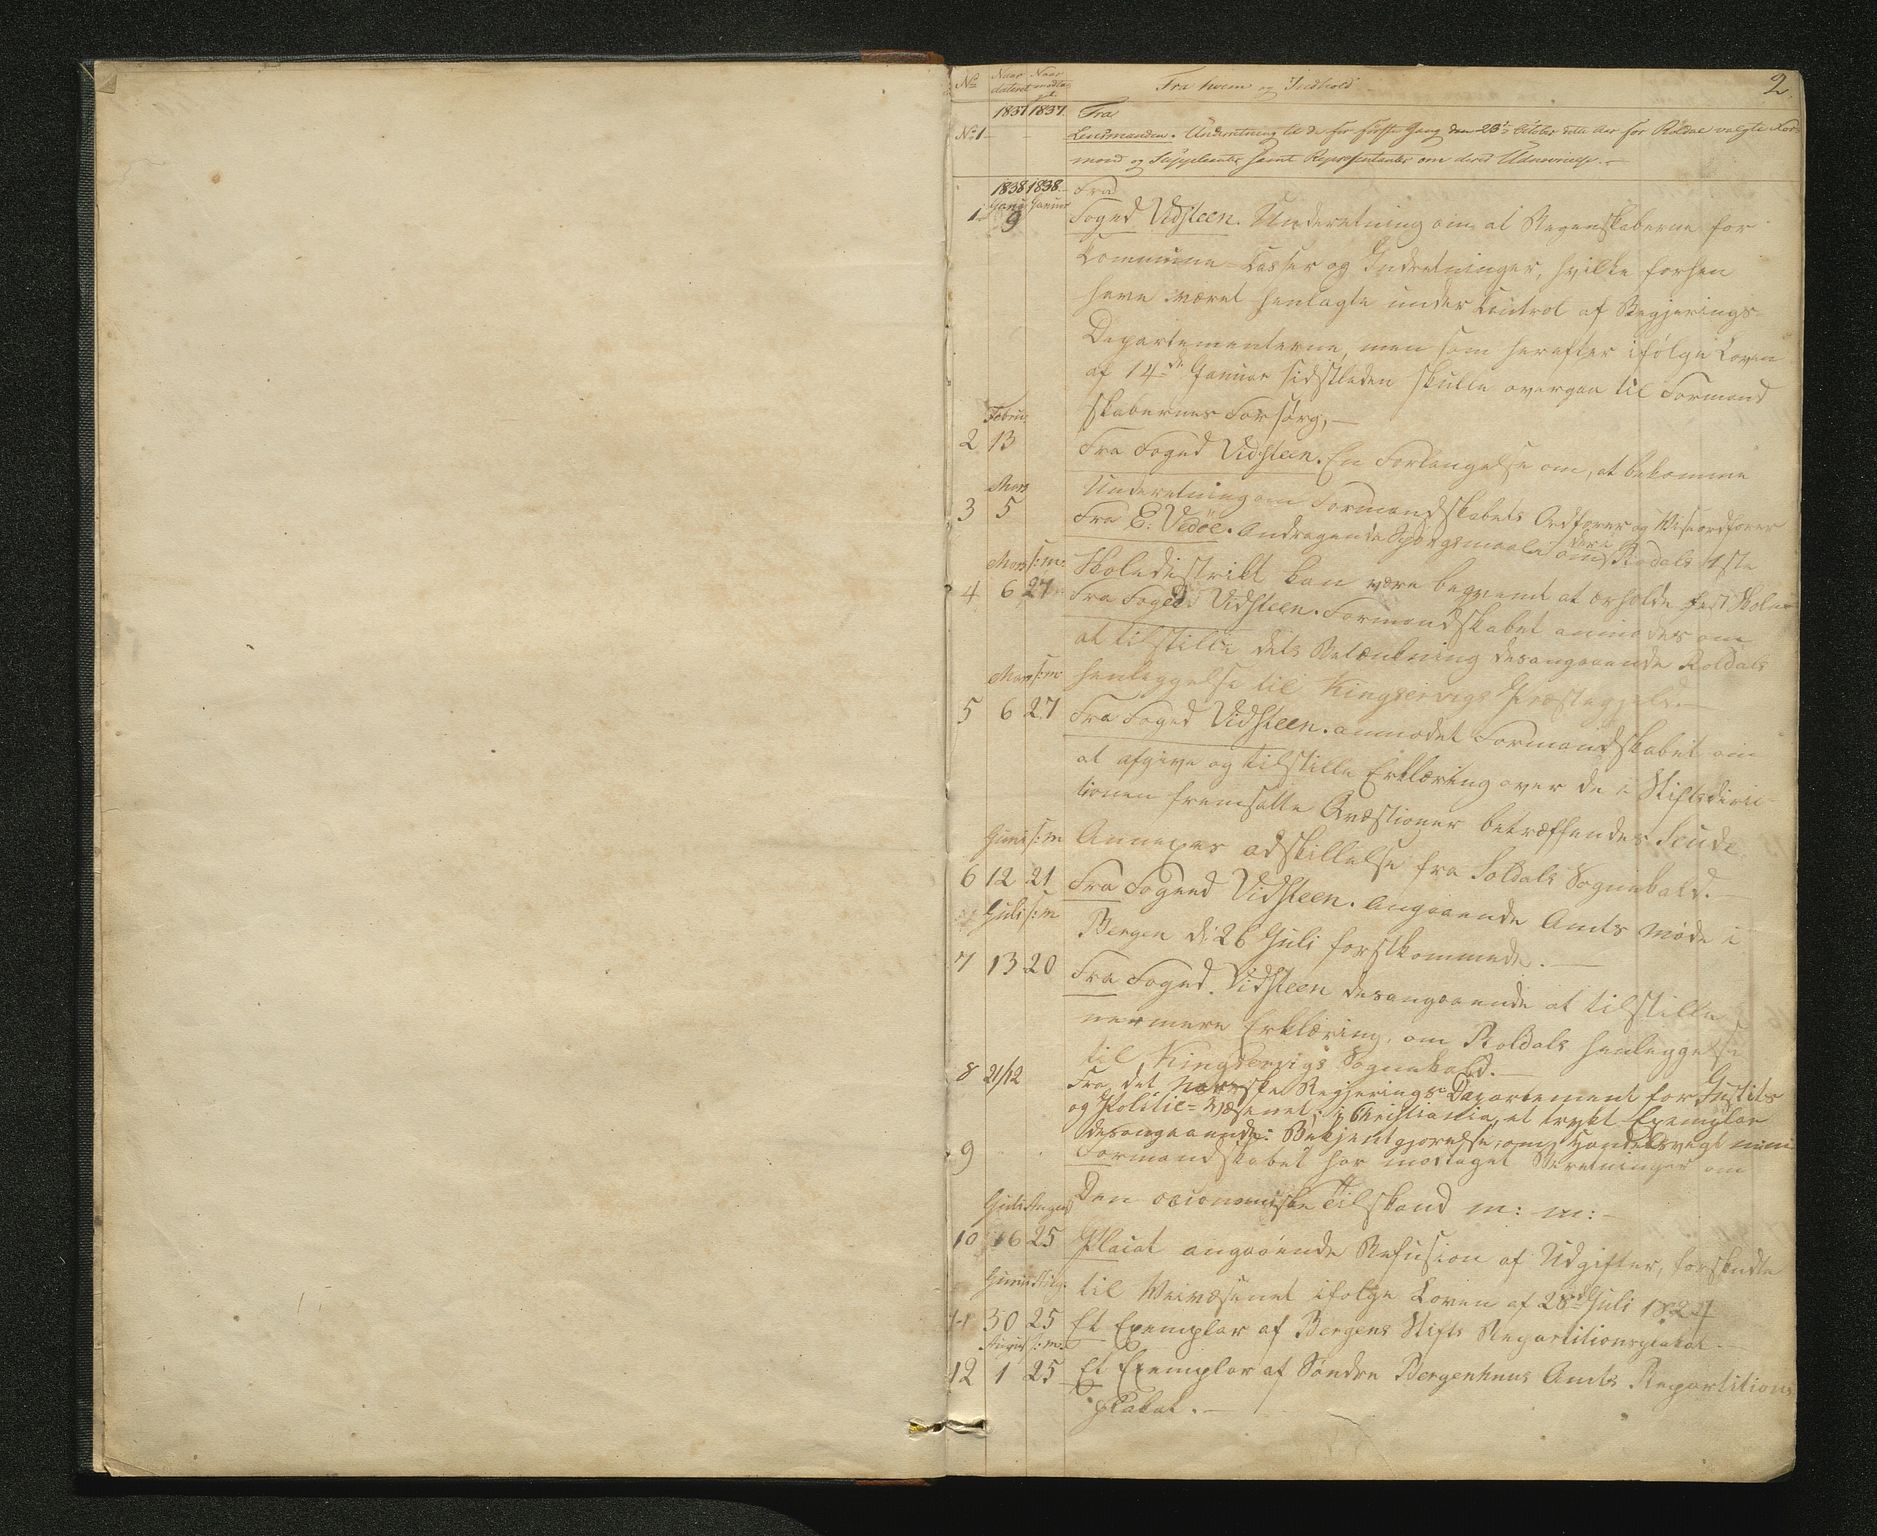 2.
No Naar dateret Naar modtaget Fra hvem og Indhold
1837 1837 Fra
No 1 Lensmanden. Underretning til de for første Gang den 23de October dette Aar for Röldal valgte For-
mænd og Supplianter samt Repræsentanter om deres Udnævnelse. —
1838 1838 Fra
Januar Januar
1 9 Foged Vidsteen. Underretning om at Regenskaberne for
Commune-Casser og Indretninger, hvilke forhen
have været henlagte under Control af Regjerings-
Departementerne, men som herefter ifølge Loven
af 14de Januar sidstleden skulle overgaa til Formand
skabernes Forsørg, —
Febru:
2 13 Fra Foged Vidsteen. En Forlangelse om, at bekomme
Underretning om Formandskabets Ordfører og Viseordfører
Mars
3 5 Fra E. Vidöe. Andragende Spörgsmaale om deri Rødals 1ste
Skoledistrikt kan være begvemt at erholde fast Skole
Mars s:m:
4 6 27 Fra Foged Vidsteen. Formandskabet anmodes om
at tilstille dets Betænkning desangaaende Roldals
henleggelse til Kingservigs Præstegjeld. —
Mars s:m
5 6 27 Fra Foged Vidsteen. anmodet Formandskabet om
at afgive og tilstille Erklæring over de i Stiftsdirec-
tionen fremsatte Qvæstioner betræffendes Seude
Annexes adskillelse fra Soldals Sognekald. —
Juni s:m
6 12 21 Fra Foged Vidsteen. Angaaende Amts Møde i
Bergen d: 26 Juli førstkommende. —
Juli s:m
7 13 20 Fra Foged Vidsteen desangaaende at tilstille
nermere Erklæring, om Roldals henleggelse
til Kingservigs Sognekald. —
8 21/12 Fra det Norske Regjerings-Departement for Justits
og Politie-Væsenet; i Christiania, et trykt Exemplar
desangaaende: Bekjentgjørelse, om Handelsvegt m:m:
9 Formandskabet har modtaget Beretninger om
Den oeconomiske Tilstand m: m: —
Juli August
10 16 25 Placat angaaende Refusion af Udgifter, forskudte
til Veivæsenet ifølge Loven af 28de Juli 1824
Juni Aug:
11 30 25 Et Exemplar af Bergens Stifts Repartitionsplakat. —
August s:m:
12 1 25 Et Exemplar af Søndre Bergenhuus Amts Repartitions
plakat. —